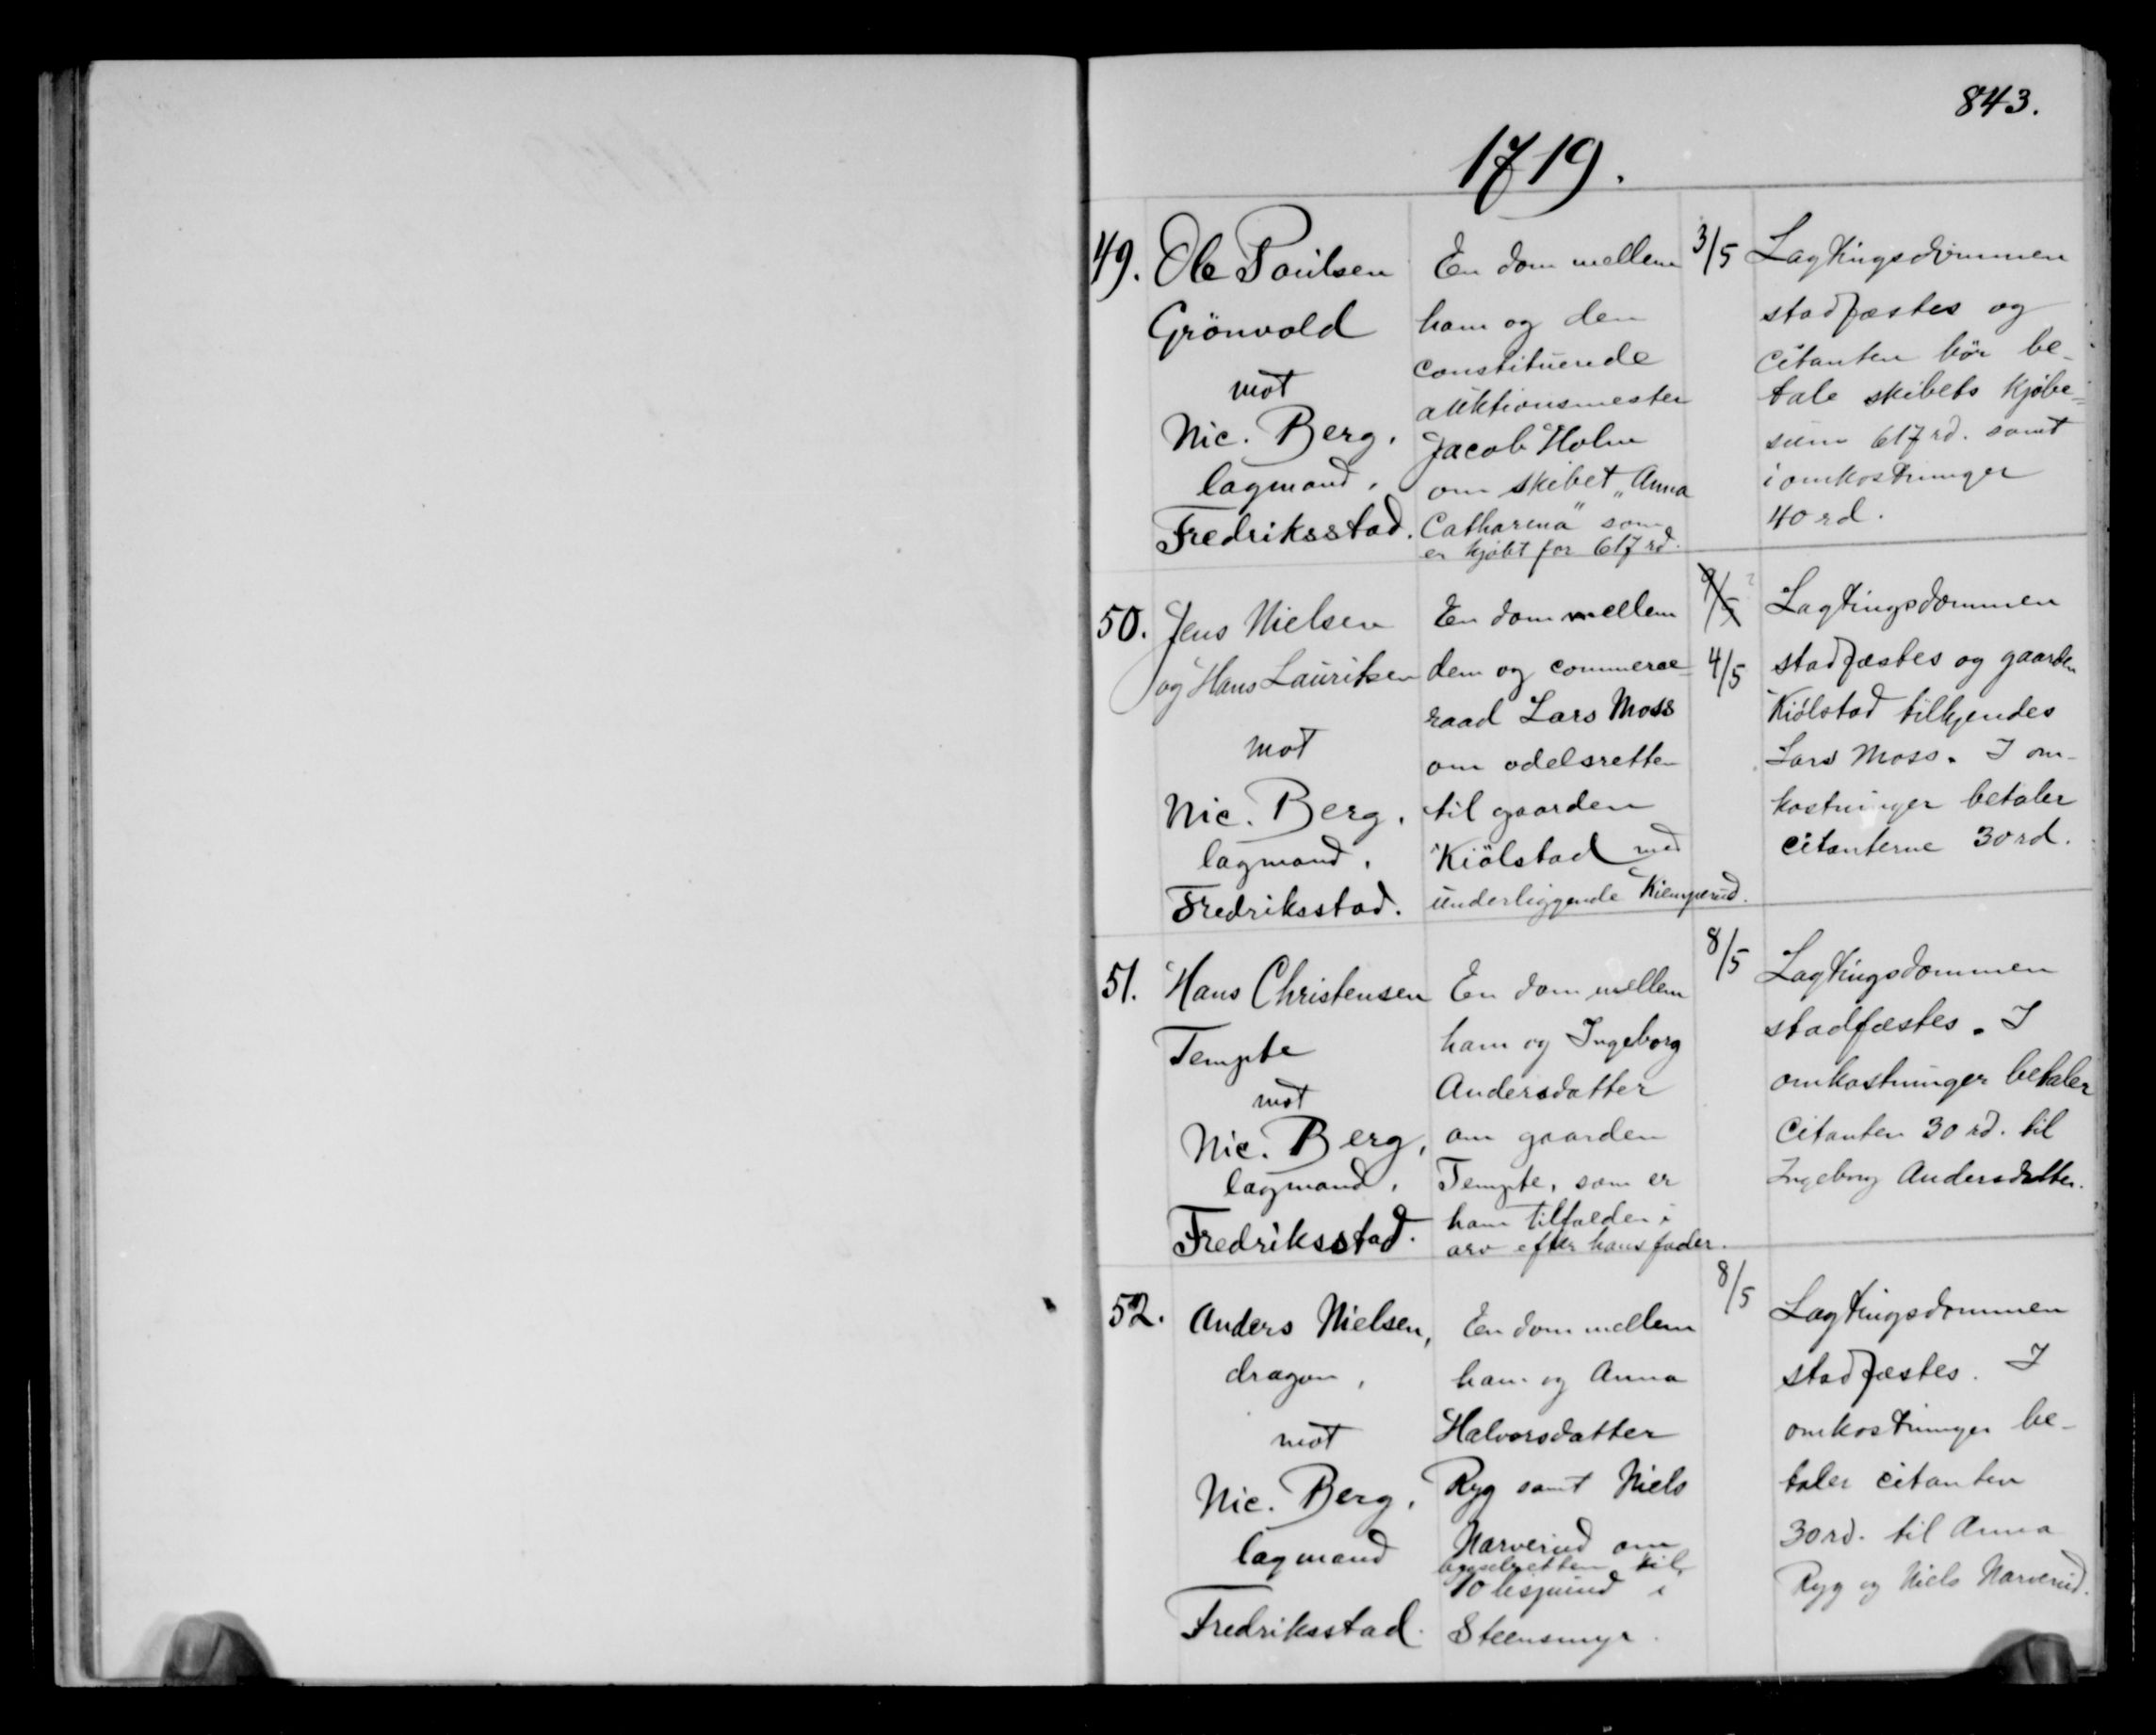 843.
1719.
49.
Ole Poulsen
Grönvold
mot
Nic. Berg,
lagmand,
Fredriksstad.
En dom mellem
ham og den
constituerede
auktionsmester
Jacob Holm
om skibet „Anna
Catharina" som
er kjöbt for 617 rd.
3/5
Lagtingsdommen
stadfæstes og
citanten bör be-
tale skibets kjöbe-
sum 617 rd. samt
i omkostninger
40 rd.
50.
Jens Nielsen
og Hans Lauritsen
mot
Nic. Berg,
lagmand,
Fredriksstad.
En dom mellem
dem og commerce-
raad Lars Moss
om odelsretten
til gaarden
Kiölstad med
underliggende Kiemperud.
4/5
Lagtingsdommen
stadfæstes og gaarden
Kiölstad tilkjendes
Lars Moss. I om-
kostninger betaler
citanterne 30 rd.
51.
Hans Christensen
Tempte
mot
Nic. Berg,
lagmand,
Fredriksstad.
En dom mellem
ham og Ingeborg
Andersdatter
om gaarden
Tempte, som er
ham tilfalden i
arv efter hans fader.
8/5
Lagtingsdommen
stadfæstes. I
omkostninger betaler
Citanten 30 rd. til
Ingeborg Andersdatter.
52.
Anders Nielsen,
dragon,
mot
Nic. Berg,
lagmand
Fredriksstad.
En dom mellem
ham og Anna
Halvorsdatter
Ryg samt Niels
Narverud om
bygselretten til
10 lispund i
Steensmyr.
8/5
Lagtingsdommen
stadfæstes. I
omkostninger be-
taler citanten
30 rd. til Anna
Ryg og Niels Narverud.